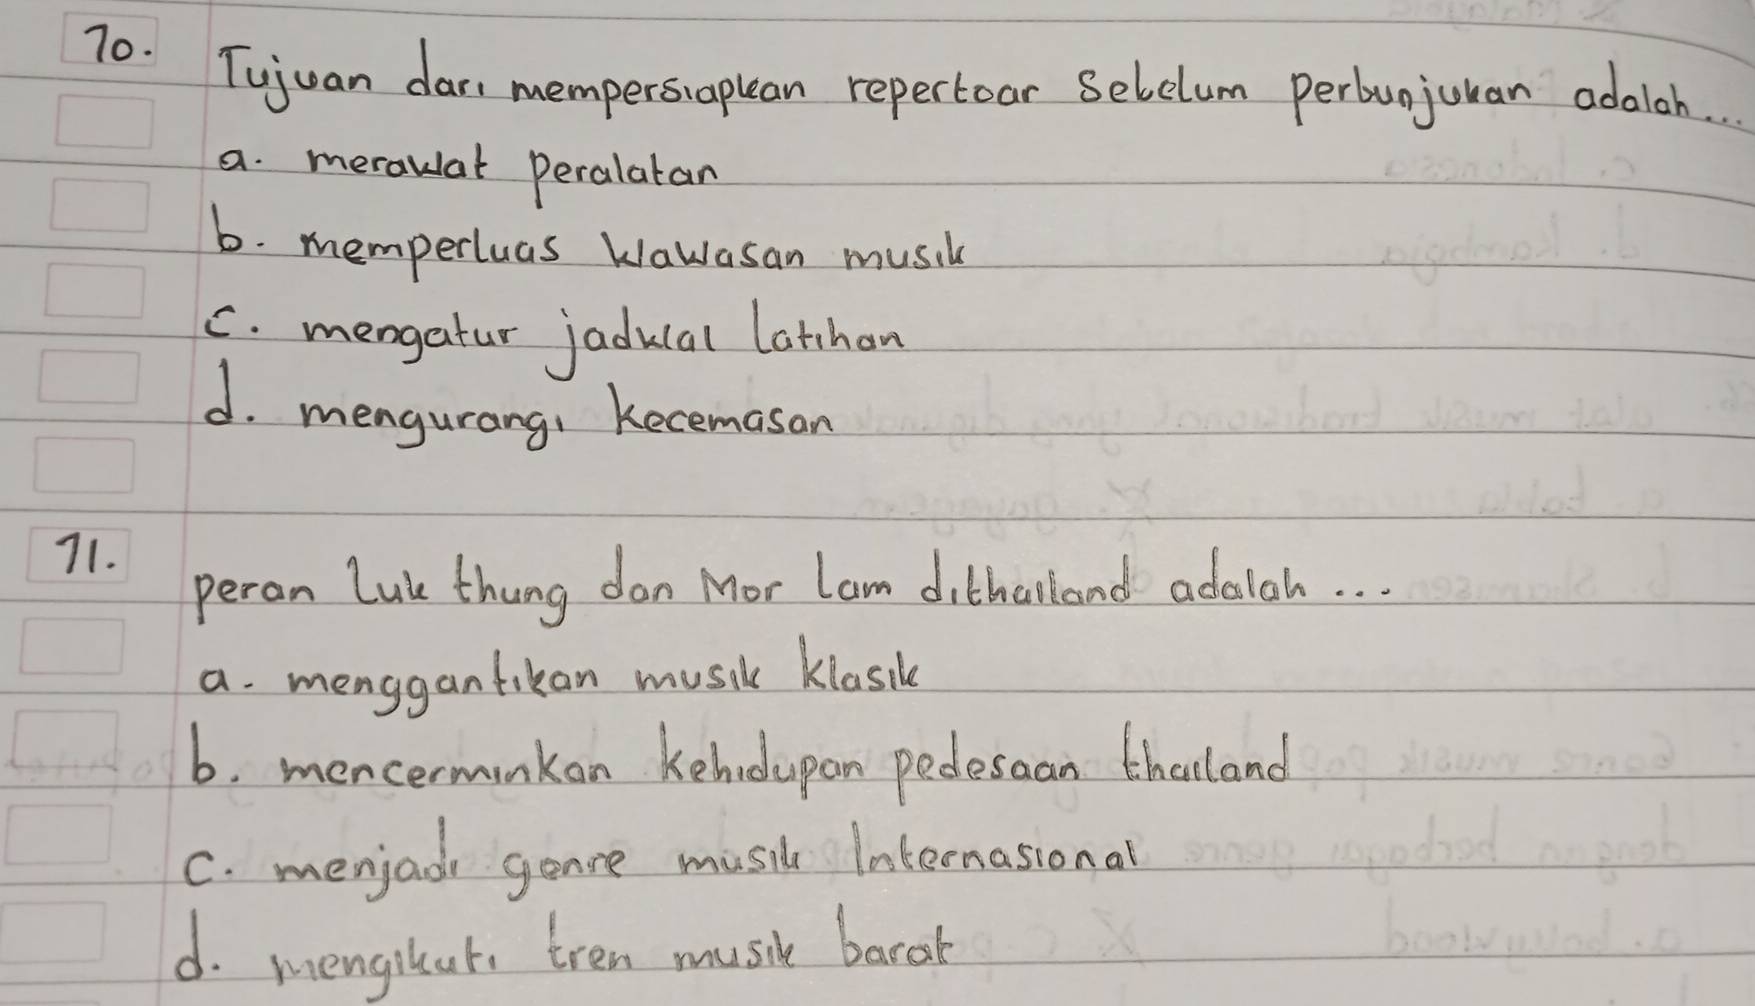 70. Tujuan dari mempersiapkan repertoar sebelum perbunjukan adalah...
a. merawat peralatan
b. memperluas wawasan musik
c. mengatur jadwal latihan
d. mengurangi kecemasan
71. peran luk thung dan Mor lam dithailand adalah ...
a. menggantikan musik klasik
b. mencerminkan kehidupan pedesaan thailand
c. menjadi genre musik Internasional
d. mengikuti tren musik barat